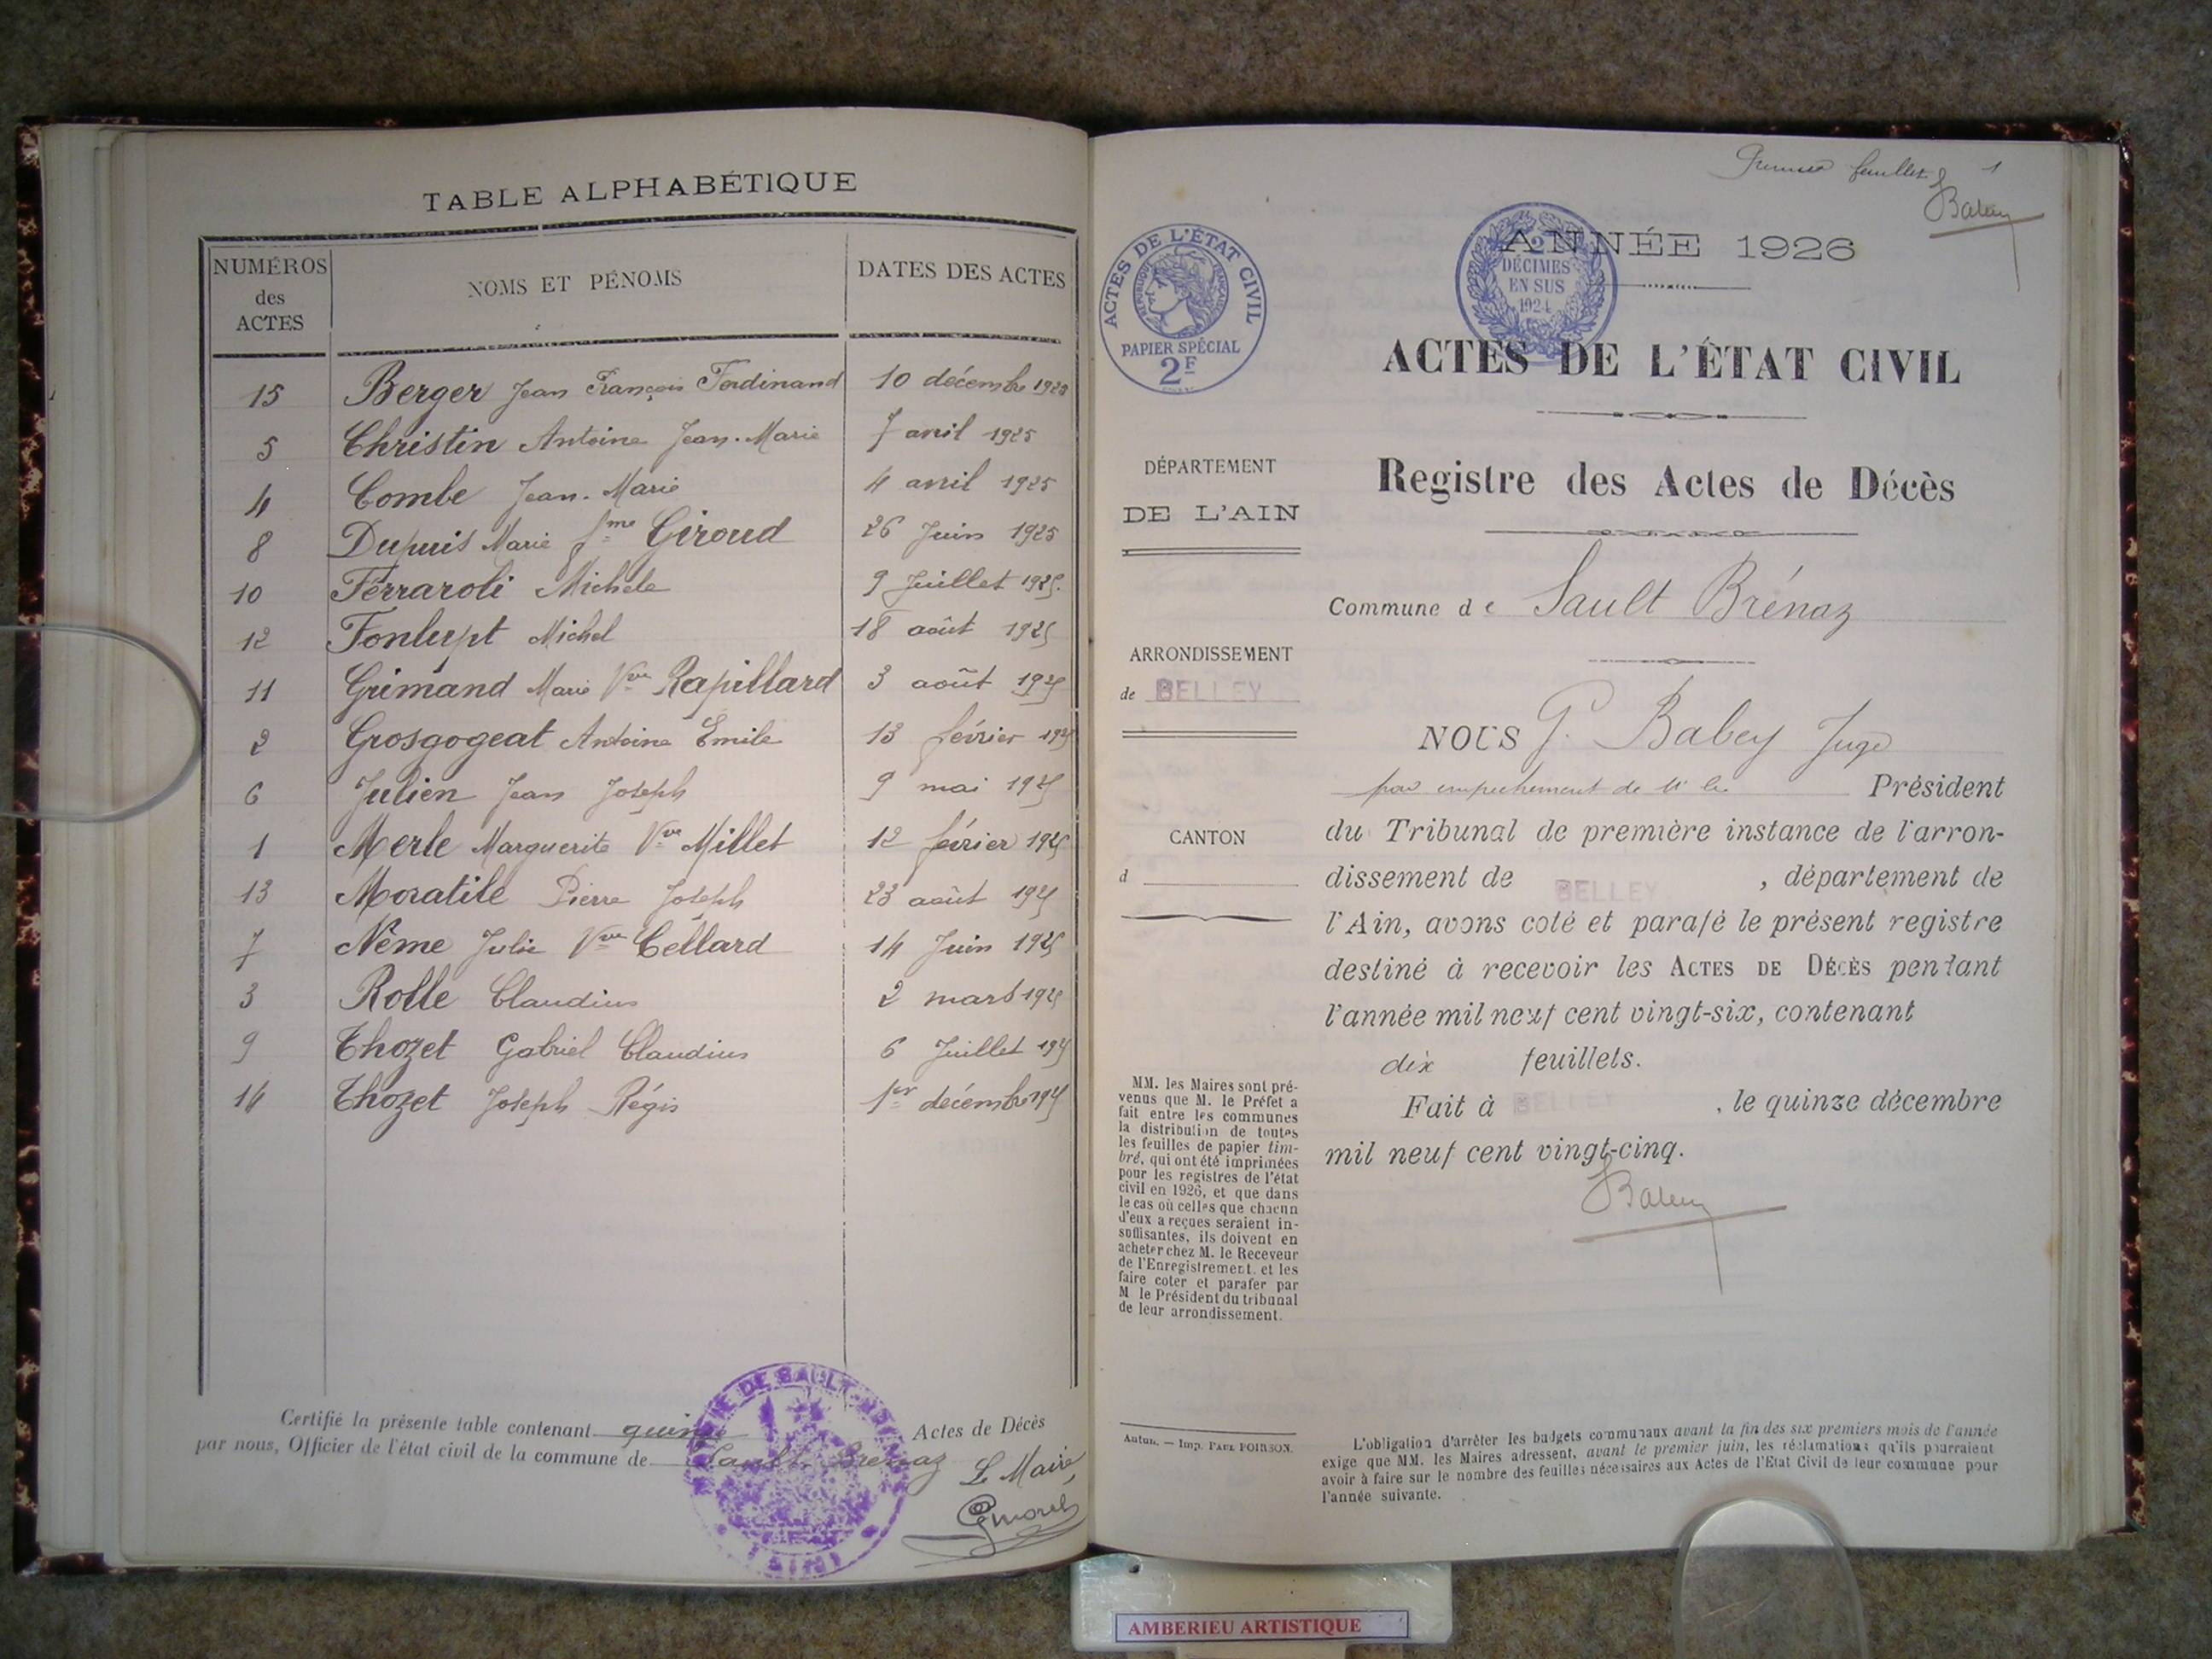 TABLE ALPHABÉTIQUE
NUMÉROS des ACTES
NOMS ET PÉNOMS
DATES DES ACTES
15 Berger Jean François Ferdinand 10 décembre 1925
5 Christin Antoine Jean-Marie 7 avril 1925
4 Combe Jean-Marie 4 avril 1925
8 Dupuis Marie fme Giroud 26 Juin 1925
10 Ferraroli Michele 9 Juillet 1925.
12 Fonlupt Michel 18 août 1925
11 Grimand Marie Vve Rapillard 3 août 1925
2 Grosgogeat Antoine Emile 13 février 1925
6 Julien Jean Joseph 9 mai 1925
1 Merle Marguerite Vve Millet 12 février 1925
13 Moratile Pierre Joseph 23 août 1925
7 Nême Julie Vve Cellard 14 Juin 1925
3 Rolle Claudius 2 mars 1925
9 Thozet Gabriel Claudius 6 Juillet 1925
14 Thozet Joseph Régis 1er décembre 1925
Certifié la présente table contenant quinze Actes de Décès
par nous, Officier de l'état civil de la commune de Sault Brénaz
Le Maire,
MAIRIE DE SAULT-BRÉNAZ
(AIN)
Premier feuillet 1
Babey
ACTES DE L'ÉTAT CIVIL
RÉPUBLIQUE FRANÇAISE
PAPIER SPÉCIAL
2F
2
DÉCIMES
EN SUS
1924
ANNÉE 1926
ACTES DE L'ÉTAT CIVIL
Registre des Actes de Décès
DÉPARTEMENT
DE L'AIN
ARRONDISSEMENT
de BELLEY
CANTON
d
Commune de Sault Brénaz
NOUS G. Babey Juge
par empêchement de M. le Président
du Tribunal de première instance de l'arron-
dissement de BELLEY, département de
l'Ain, avons coté et parafé le présent registre
destiné à recevoir les ACTES DE DÉCÈS pendant
l'année mil neuf cent vingt-six, contenant
dix feuillets.
Fait à BELLEY, le quinze décembre
mil neuf cent vingt-cinq.
Babey
MM. les Maires sont pré-
venus que M. le Préfet a
fait entre les communes
la distribution de toutes
les feuilles de papier tim-
bré, qui ont été imprimées
pour les registres de l'état
civil en 1926, et que dans
le cas où celles que chacun
d'eux a reçues seraient in-
suffisantes, ils doivent en
acheter chez M. le Receveur
de l'Enregistrement, et les
faire coter et parafer par
M. le Président du tribunal
de leur arrondissement.
Autun. — Imp. PAUL POIRSON.
L'obligation d'arrêter les budgets communaux avant la fin des six premiers mois de l'année
exige que MM. les Maires adressent, avant le premier juin, les réclamations qu'ils pourraient
avoir à faire sur le nombre des feuilles nécessaires aux Actes de l'Etat Civil de leur commune pour
l'année suivante.
AMBERIEU ARTISTIQUE